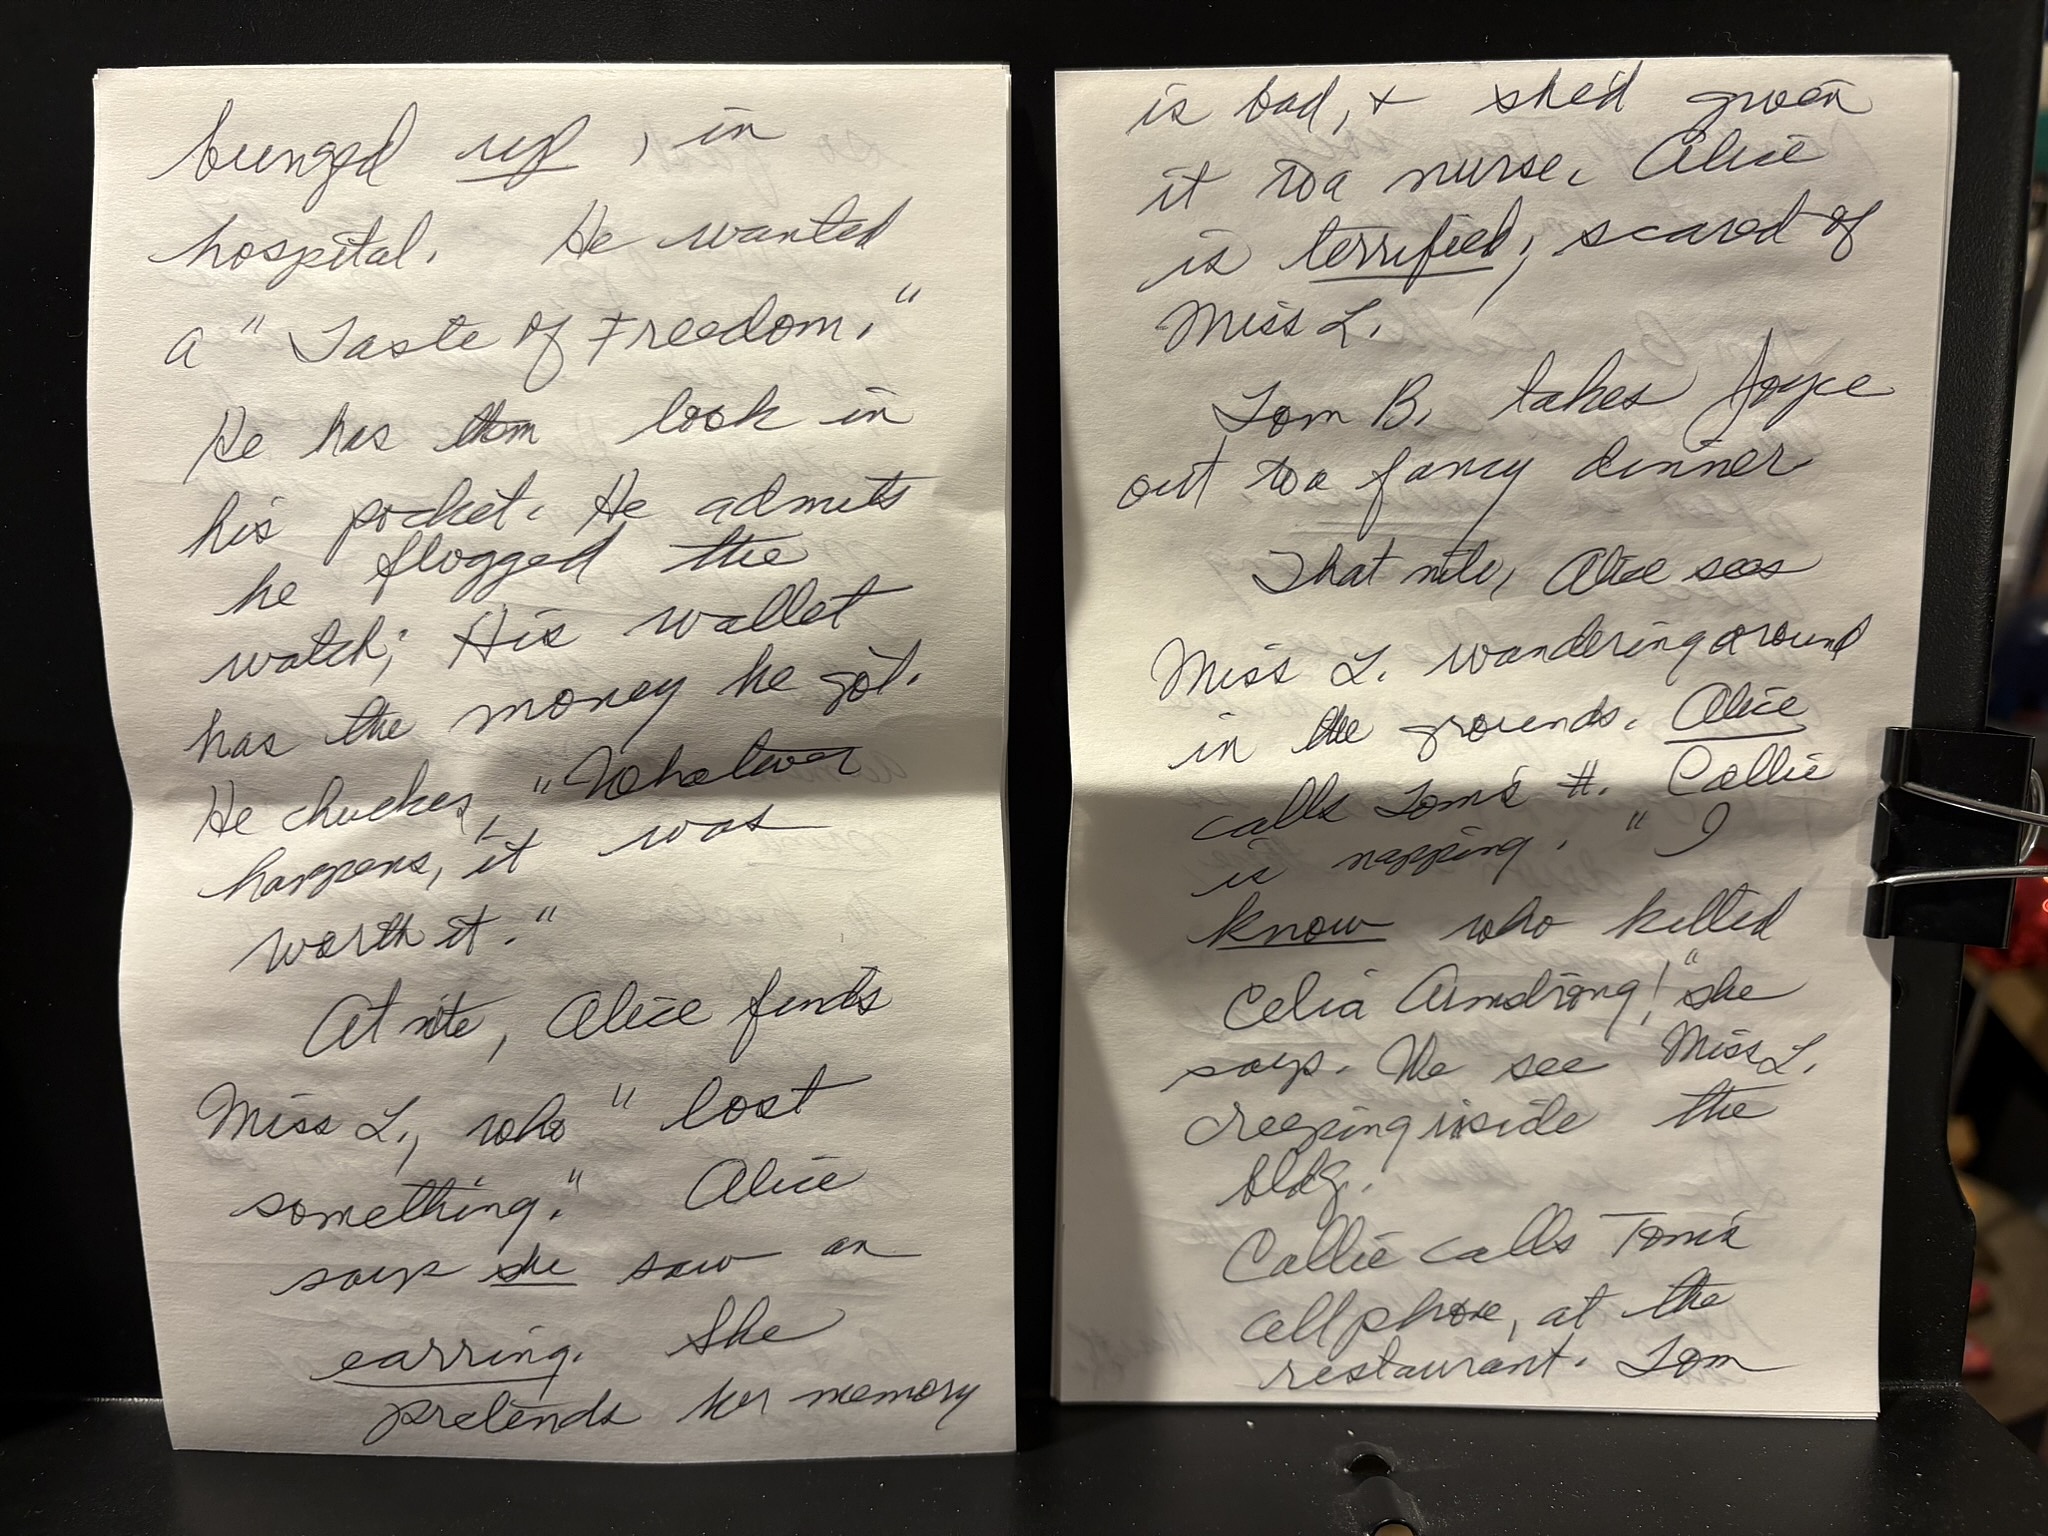 bunged up, in
hospital. He wanted
a "Taste of Freedom."
He has them look in
his pocket. He admits
he flogged the
watch; His wallet
has the money he got.
He chuckes, "Whatever
happens, it was
worth it."
At nite, Alice finds
Miss L., who "lost
something." Alice
says she saw an
earring. She
pretends her memory
is bad, & she'd given
it to a nurse. Alice
is terrified, scared of
Miss L.
Tom B. takes Joyce
out to a fancy dinner
That nite, Alice sees
Miss L. wandering around
in the grounds. Alice
calls Tom's #. Callie
is napping. "I
know who killed
Celia Armstrong!" she
says. We see Miss L.
creeping inside the
bldg.
Callie calls Tom's
cell phone, at the
restaurant. Tom